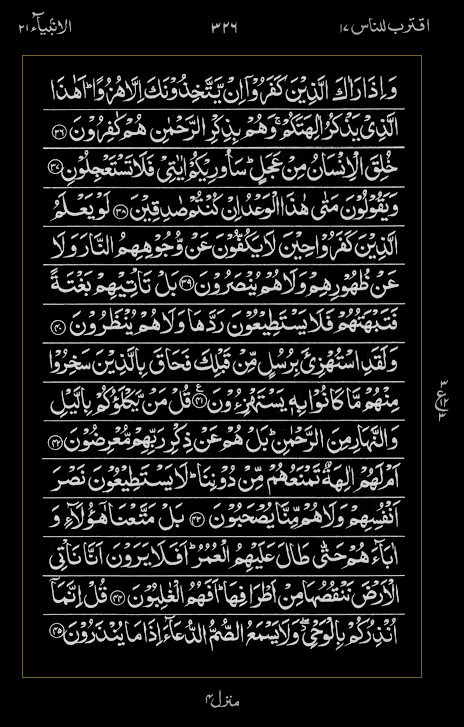 اقترب للناس ۱۷ ۳۲۶ الانبیآء ۲۱
وَاِذَا رَاٰكَ الَّذِیْنَ كَفَرُوْۤا اِنْ یَّتَّخِذُوْنَكَ اِلَّا هُزُوًا ؕ اَهٰذَا
الَّذِیْ یَذْكُرُ اٰلِهَتَكُمْ ۚ وَهُمْ بِذِكْرِ الرَّحْمٰنِ هُمْ كٰفِرُوْنَ ۝۳۶
خُلِقَ الْاِنْسَانُ مِنْ عَجَلٍ ؕ سَاُورِیْكُمْ اٰیٰتِیْ فَلَا تَسْتَعْجِلُوْنِ ۝۳۷
وَیَقُوْلُوْنَ مَتٰی هٰذَا الْوَعْدُ اِنْ كُنْتُمْ صٰدِقِیْنَ ۝۳۸ لَوْ یَعْلَمُ
الَّذِیْنَ كَفَرُوْا حِیْنَ لَا یَكُفُّوْنَ عَنْ وُّجُوْهِهِمُ النَّارَ وَلَا
عَنْ ظُهُوْرِهِمْ وَلَا هُمْ یُنْصَرُوْنَ ۝۳۹ بَلْ تَاْتِیْهِمْ بَغْتَةً
فَتَبْهَتُهُمْ فَلَا یَسْتَطِیْعُوْنَ رَدَّهَا وَلَا هُمْ یُنْظَرُوْنَ ۝۴۰
وَلَقَدِ اسْتُهْزِئَ بِرُسُلٍ مِّنْ قَبْلِكَ فَحَاقَ بِالَّذِیْنَ سَخِرُوْا
مِنْهُمْ مَّا كَانُوْا بِهٖ یَسْتَهْزِءُوْنَ ۝۴۱ ع قُلْ مَنْ یَّكْلَؤُكُمْ بِالَّیْلِ
وَالنَّهَارِ مِنَ الرَّحْمٰنِ ؕ بَلْ هُمْ عَنْ ذِكْرِ رَبِّهِمْ مُّعْرِضُوْنَ ۝۴۲
اَمْ لَهُمْ اٰلِهَةٌ تَمْنَعُهُمْ مِّنْ دُوْنِنَا ؕ لَا یَسْتَطِیْعُوْنَ نَصْرَ
اَنْفُسِهِمْ وَلَا هُمْ مِّنَّا یُصْحَبُوْنَ ۝۴۳ بَلْ مَتَّعْنَا هٰۤؤُلَآءِ وَ
اٰبَآءَهُمْ حَتّٰی طَالَ عَلَیْهِمُ الْعُمُرُ ؕ اَفَلَا یَرَوْنَ اَنَّا نَاْتِی
الْاَرْضَ نَنْقُصُهَا مِنْ اَطْرَافِهَا ؕ اَفَهُمُ الْغٰلِبُوْنَ ۝۴۴ قُلْ اِنَّمَاۤ
اُنْذِرُكُمْ بِالْوَحْیِ ۖ وَلَا یَسْمَعُ الصُّمُّ الدُّعَآءَ اِذَا مَا یُنْذَرُوْنَ ۝۴۵
۳
ع ۱۲
۳
منزل ۴